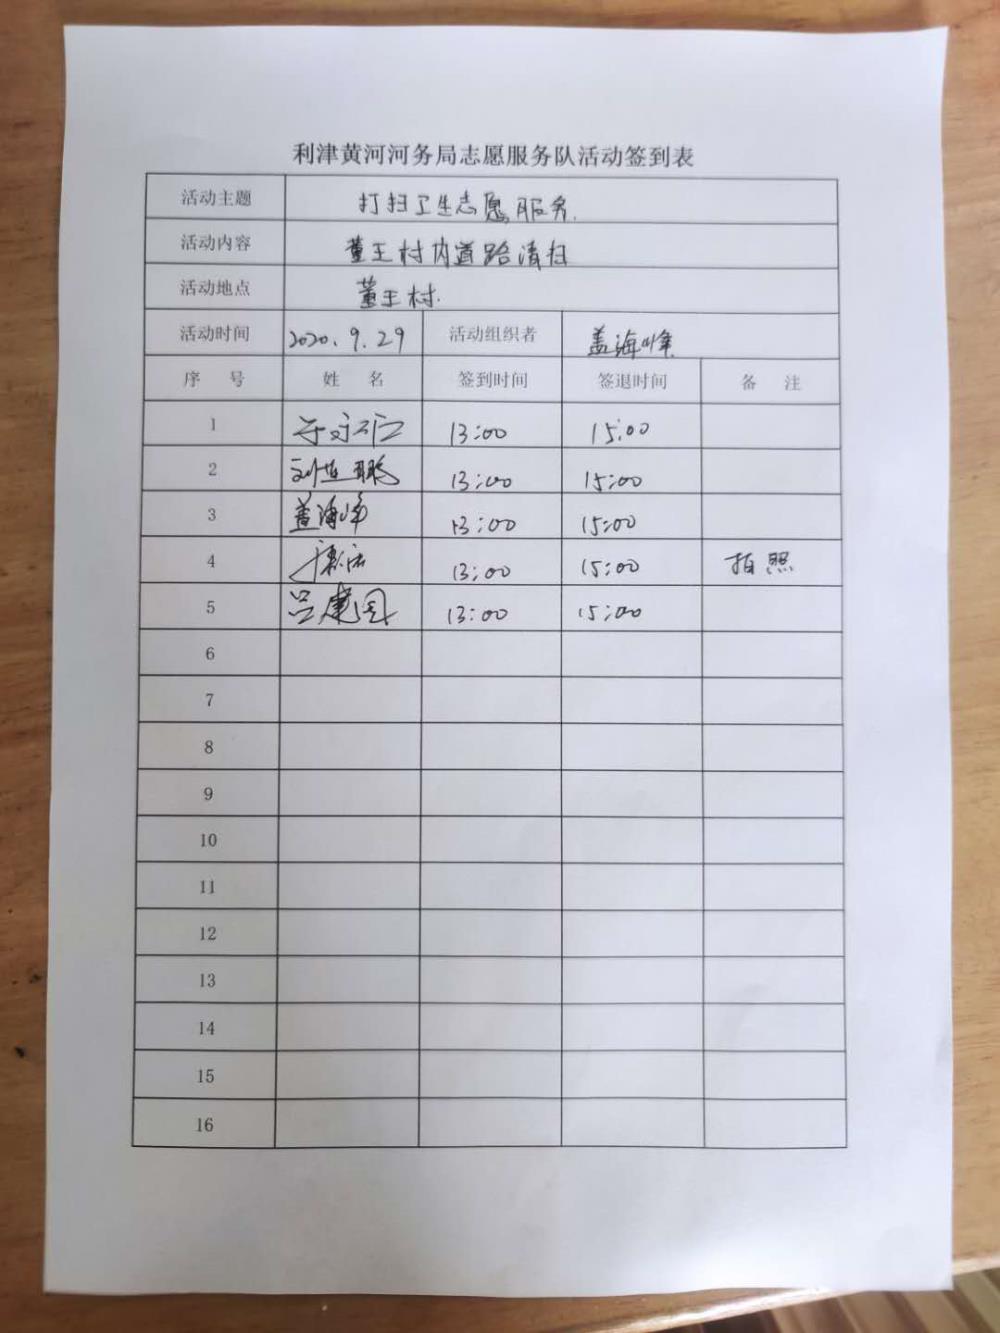 利津黄河河务局志愿服务队活动签到表
活动主题 打扫卫生志愿服务.
活动内容 董王村内道路清扫
活动地点 董王村.
活动时间 2020.9.29 活动组织者 盖海峰
序 号 姓 名 签到时间 签退时间 备 注
1 13:00 15:00
2 13:00 15:00
3 盖海峰 13:00 15:00
4 13:00 15:00 拍照
5 吕建国 13:00 15:00
6
7
8
9
10
11
12
13
14
15
16